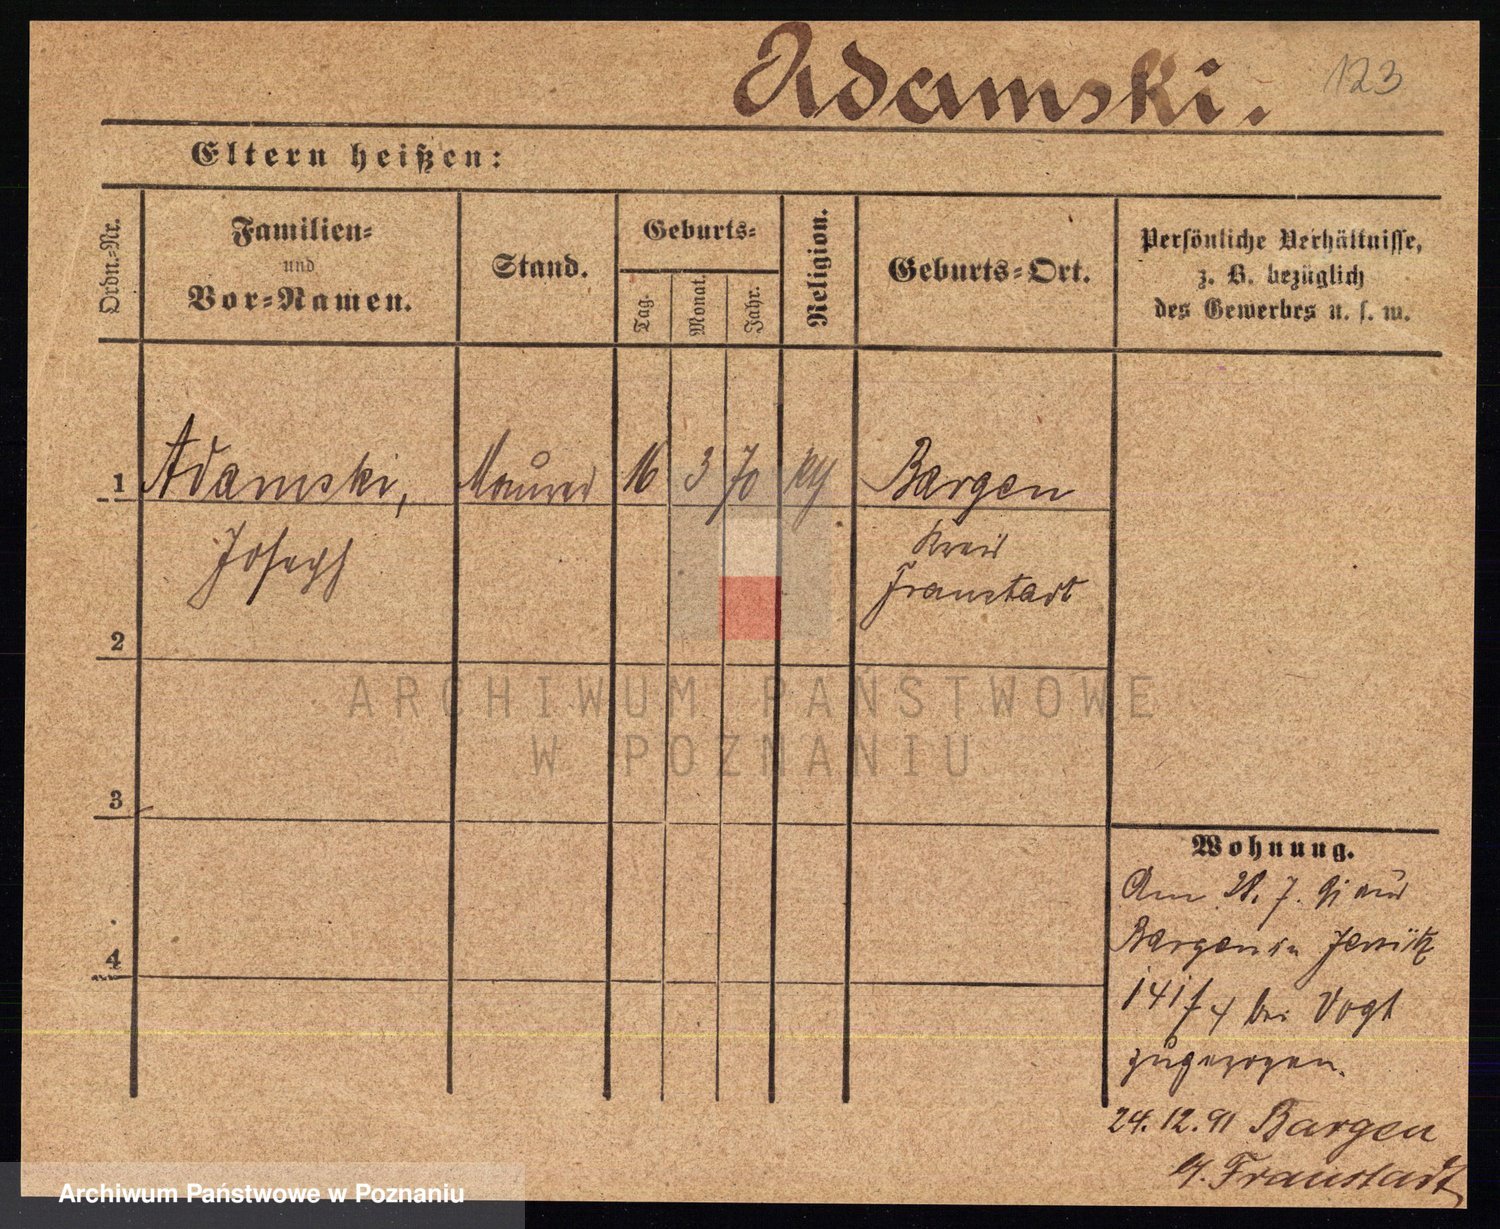 Adamski. 123
Eltern heißen:
Ordn.-Nr.
Familien-
und
Vor-Namen.
Stand.
Geburts-
Tag.
Monat.
Jahr.
Religion.
Geburts-Ort.
Persönliche Verhältnisse,
z. B. bezüglich
des Gewerbes u. s. w.
1 Adamski, Maurer 16 3 70 Bargen
Joseph
Kreis
Fraustadt
2
ARCHIWUM PAŃSTWOWE
W POZNANIU
3
Wohnung.
Am 28. 7. 91 aus
Bargen in Jersitz
141/4 bei Vogt
zugezogen.
4
24.12.91 Bargen
Fraustadt
Archiwum Państwowe w Poznaniu